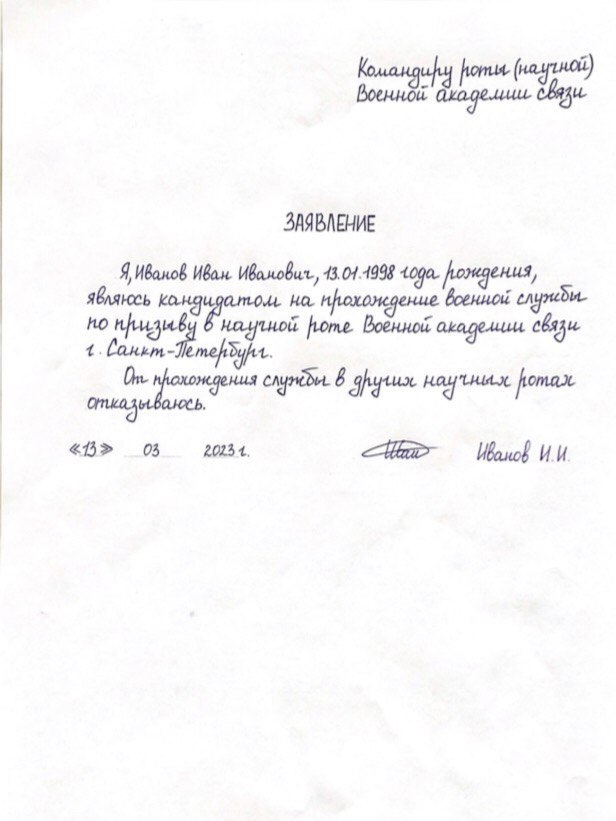 Командиру роты (научной)
Военной академии связи
ЗАЯВЛЕНИЕ
Я, Иванов Иван Иванович, 13.01.1998 года рождения,
являюсь кандидатом на прохождение военной службы
по призыву в научной роте Военной академии связи
г. Санкт-Петербург.
От прохождения службы в других научных ротах
отказываюсь.
«13» 03 2023 г. Иванов И.И.